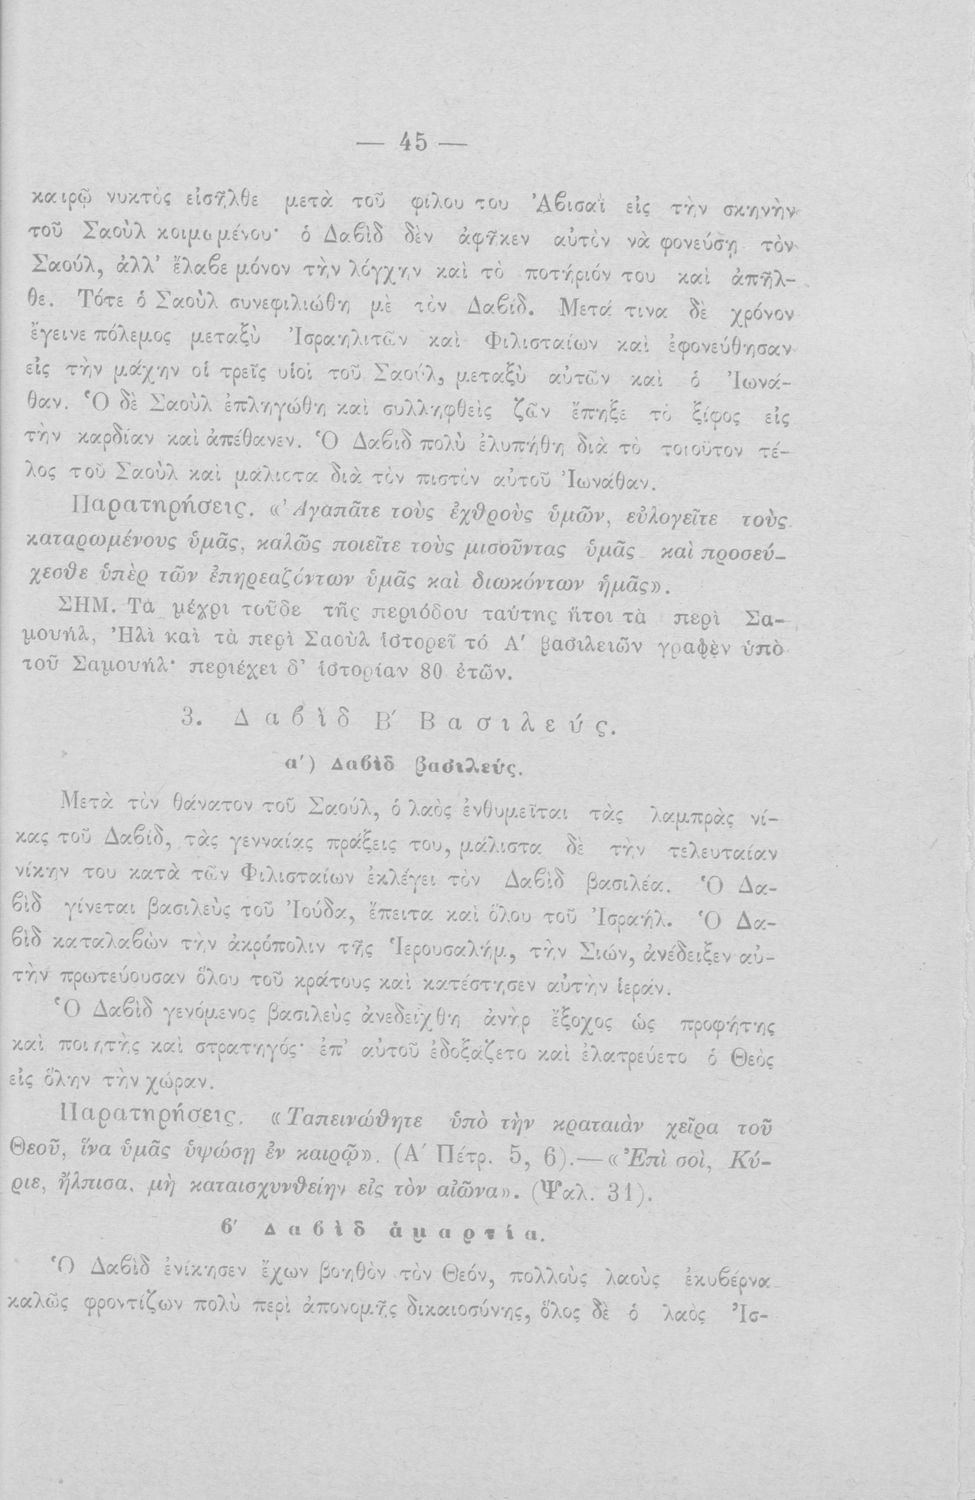 — 45 —
καιρῷ νυκτὸς εἰσῆλθε μετὰ τοῦ φίλου του Ἀβισαῒ εἰς τὴν σκηνὴν
τοῦ Σαοὺλ κοιμωμένου· ὁ Δαβὶδ δὲν ἀφῆκεν αὐτὸν νὰ φονεύσῃ τὸν
Σαούλ, ἀλλ' ἔλαβε μόνον τὴν λόγχην καὶ τὸ ποτήριόν του καὶ ἀπῆλ-
θε. Τότε ὁ Σαοὺλ συνεφιλιώθη μὲ τὸν Δαβίδ. Μετά τινα δὲ χρόνον
ἔγεινε πόλεμος μεταξὺ Ἰσραηλιτῶν καὶ Φιλισταίων καὶ ἐφονεύθησαν
εἰς τὴν μάχην οἱ τρεῖς υἱοὶ τοῦ Σαούλ, μεταξὺ αὐτῶν καὶ ὁ Ἰωνά-
θαν. Ὁ δὲ Σαοὺλ ἐπληγώθη καὶ συλληφθεὶς ζῶν ἔπηξε τὸ ξίφος εἰς
τὴν καρδίαν καὶ ἀπέθανεν. Ὁ Δαβὶδ πολὺ ἐλυπήθη διὰ τὸ τοιοῦτον τέ-
λος τοῦ Σαοὺλ καὶ μάλιστα διὰ τὸν πιστὸν αὐτοῦ Ἰωνάθαν.
Παρατηρήσεις. «Ἀγαπᾶτε τοὺς ἐχθροὺς ὑμῶν, εὐλογεῖτε τοὺς
καταρωμένους ὑμᾶς, καλῶς ποιεῖτε τοὺς μισοῦντας ὑμᾶς καὶ προσεύ-
χεσθε ὑπὲρ τῶν ἐπηρεαζόντων ὑμᾶς καὶ διωκόντων ἡμᾶς».
ΣΗΜ. Τὰ μέχρι τοῦδε τῆς περιόδου ταύτης ἤτοι τὰ περὶ Σα-
μουήλ, Ἠλὶ καὶ τὰ περὶ Σαοὺλ ἱστορεῖ τό Α' βασιλειῶν γραφὲν ὑπὸ
τοῦ Σαμουήλ· περιέχει δ' ἱστορίαν 80 ἐτῶν.
3. Δαβὶδ Β' Βασιλεύς.
α') Δαβὶδ βασιλεύς.
Μετὰ τὸν θάνατον τοῦ Σαούλ, ὁ λαὸς ἐνθυμεῖται τὰς λαμπρὰς νί-
κας τοῦ Δαβίδ, τὰς γενναίας πράξεις του, μάλιστα δὲ τὴν τελευταίαν
νίκην του κατὰ τῶν Φιλισταίων ἐκλέγει τὸν Δαβὶδ βασιλέα. Ὁ Δα-
βὶδ γίνεται βασιλεὺς τοῦ Ἰούδα, ἔπειτα καὶ ὅλου τοῦ Ἰσραήλ. Ὁ Δα-
βὶδ καταλαβὼν τὴν ἀκρόπολιν τῆς Ἱερουσαλήμ, τὴν Σιών, ἀνέδειξεν αὐ-
τὴν πρωτεύουσαν ὅλου τοῦ κράτους καὶ κατέστησεν αὐτὴν ἱεράν.
Ὁ Δαβὶδ γενόμενος βασιλεὺς ἀνεδείχθη ἀνὴρ ἔξοχος ὡς προφήτης
καὶ ποιητὴς καὶ στρατηγός· ἐπ' αὐτοῦ ἐδοξάζετο καὶ ἐλατρεύετο ὁ Θεὸς
εἰς ὅλην τὴν χώραν.
Παρατηρήσεις. «Ταπεινώθητε ὑπὸ τὴν κραταιὰν χεῖρα τοῦ
Θεοῦ, ἵνα ὑμᾶς ὑψώσῃ ἐν καιρῷ». (Α' Πέτρ. 5, 6).—«Ἐπὶ σοὶ, Κύ-
ριε, ἤλπισα, μὴ καταισχυνθείην εἰς τὸν αἰῶνα». (Ψαλ. 31).
β' Δαβὶδ ἁμαρτία.
Ὁ Δαβὶδ ἐνίκησεν ἔχων βοηθὸν τὸν Θεόν, πολλοὺς λαοὺς ἐκυβέρνα
καλῶς φροντίζων πολὺ περὶ ἀπονομῆς δικαιοσύνης, ὅλος δὲ ὁ λαὸς Ἰσ-